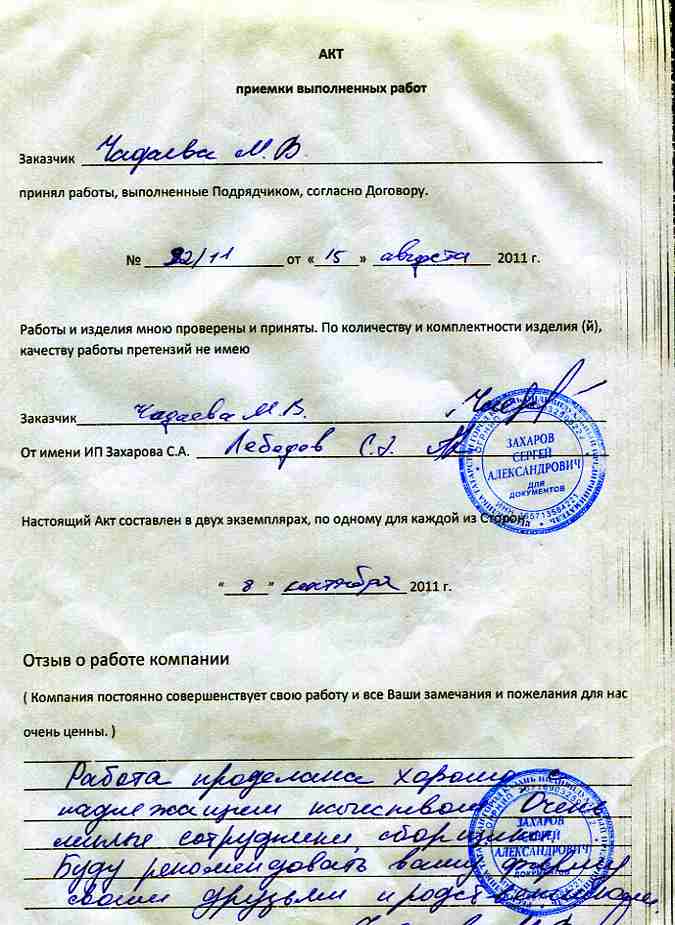 АКТ
приемки выполненных работ
Заказчик Чадаева М.В.
принял работы, выполненные Подрядчиком, согласно Договору.
№ 22/11 от «15» августа 2011 г.
Работы и изделия мною проверены и приняты. По количеству и комплектности изделия (й),
качеству работы претензий не имею
Заказчик Чадаева М.В.
От имени ИП Захарова С.А. Лебедов С.А.
ЗАХАРОВ
СЕРГЕЙ
АЛЕКСАНДРОВИЧ
ДЛЯ
ДОКУМЕНТОВ
Настоящий Акт составлен в двух экземплярах, по одному для каждой из Сторон
" 8 " сентября 2011 г.
Отзыв о работе компании
( Компания постоянно совершенствует свою работу и все Ваши замечания и пожелания для нас
очень ценны. )
Работа проделана хорошо с
надлежащем качеством. Очень
милые сотрудники, сборщики.
Буду рекомендовать вашу фирму
своим друзьям и родственникам.
ЗАХАРОВ
СЕРГЕЙ
АЛЕКСАНДРОВИЧ
ДЛЯ
ДОКУМЕНТОВ